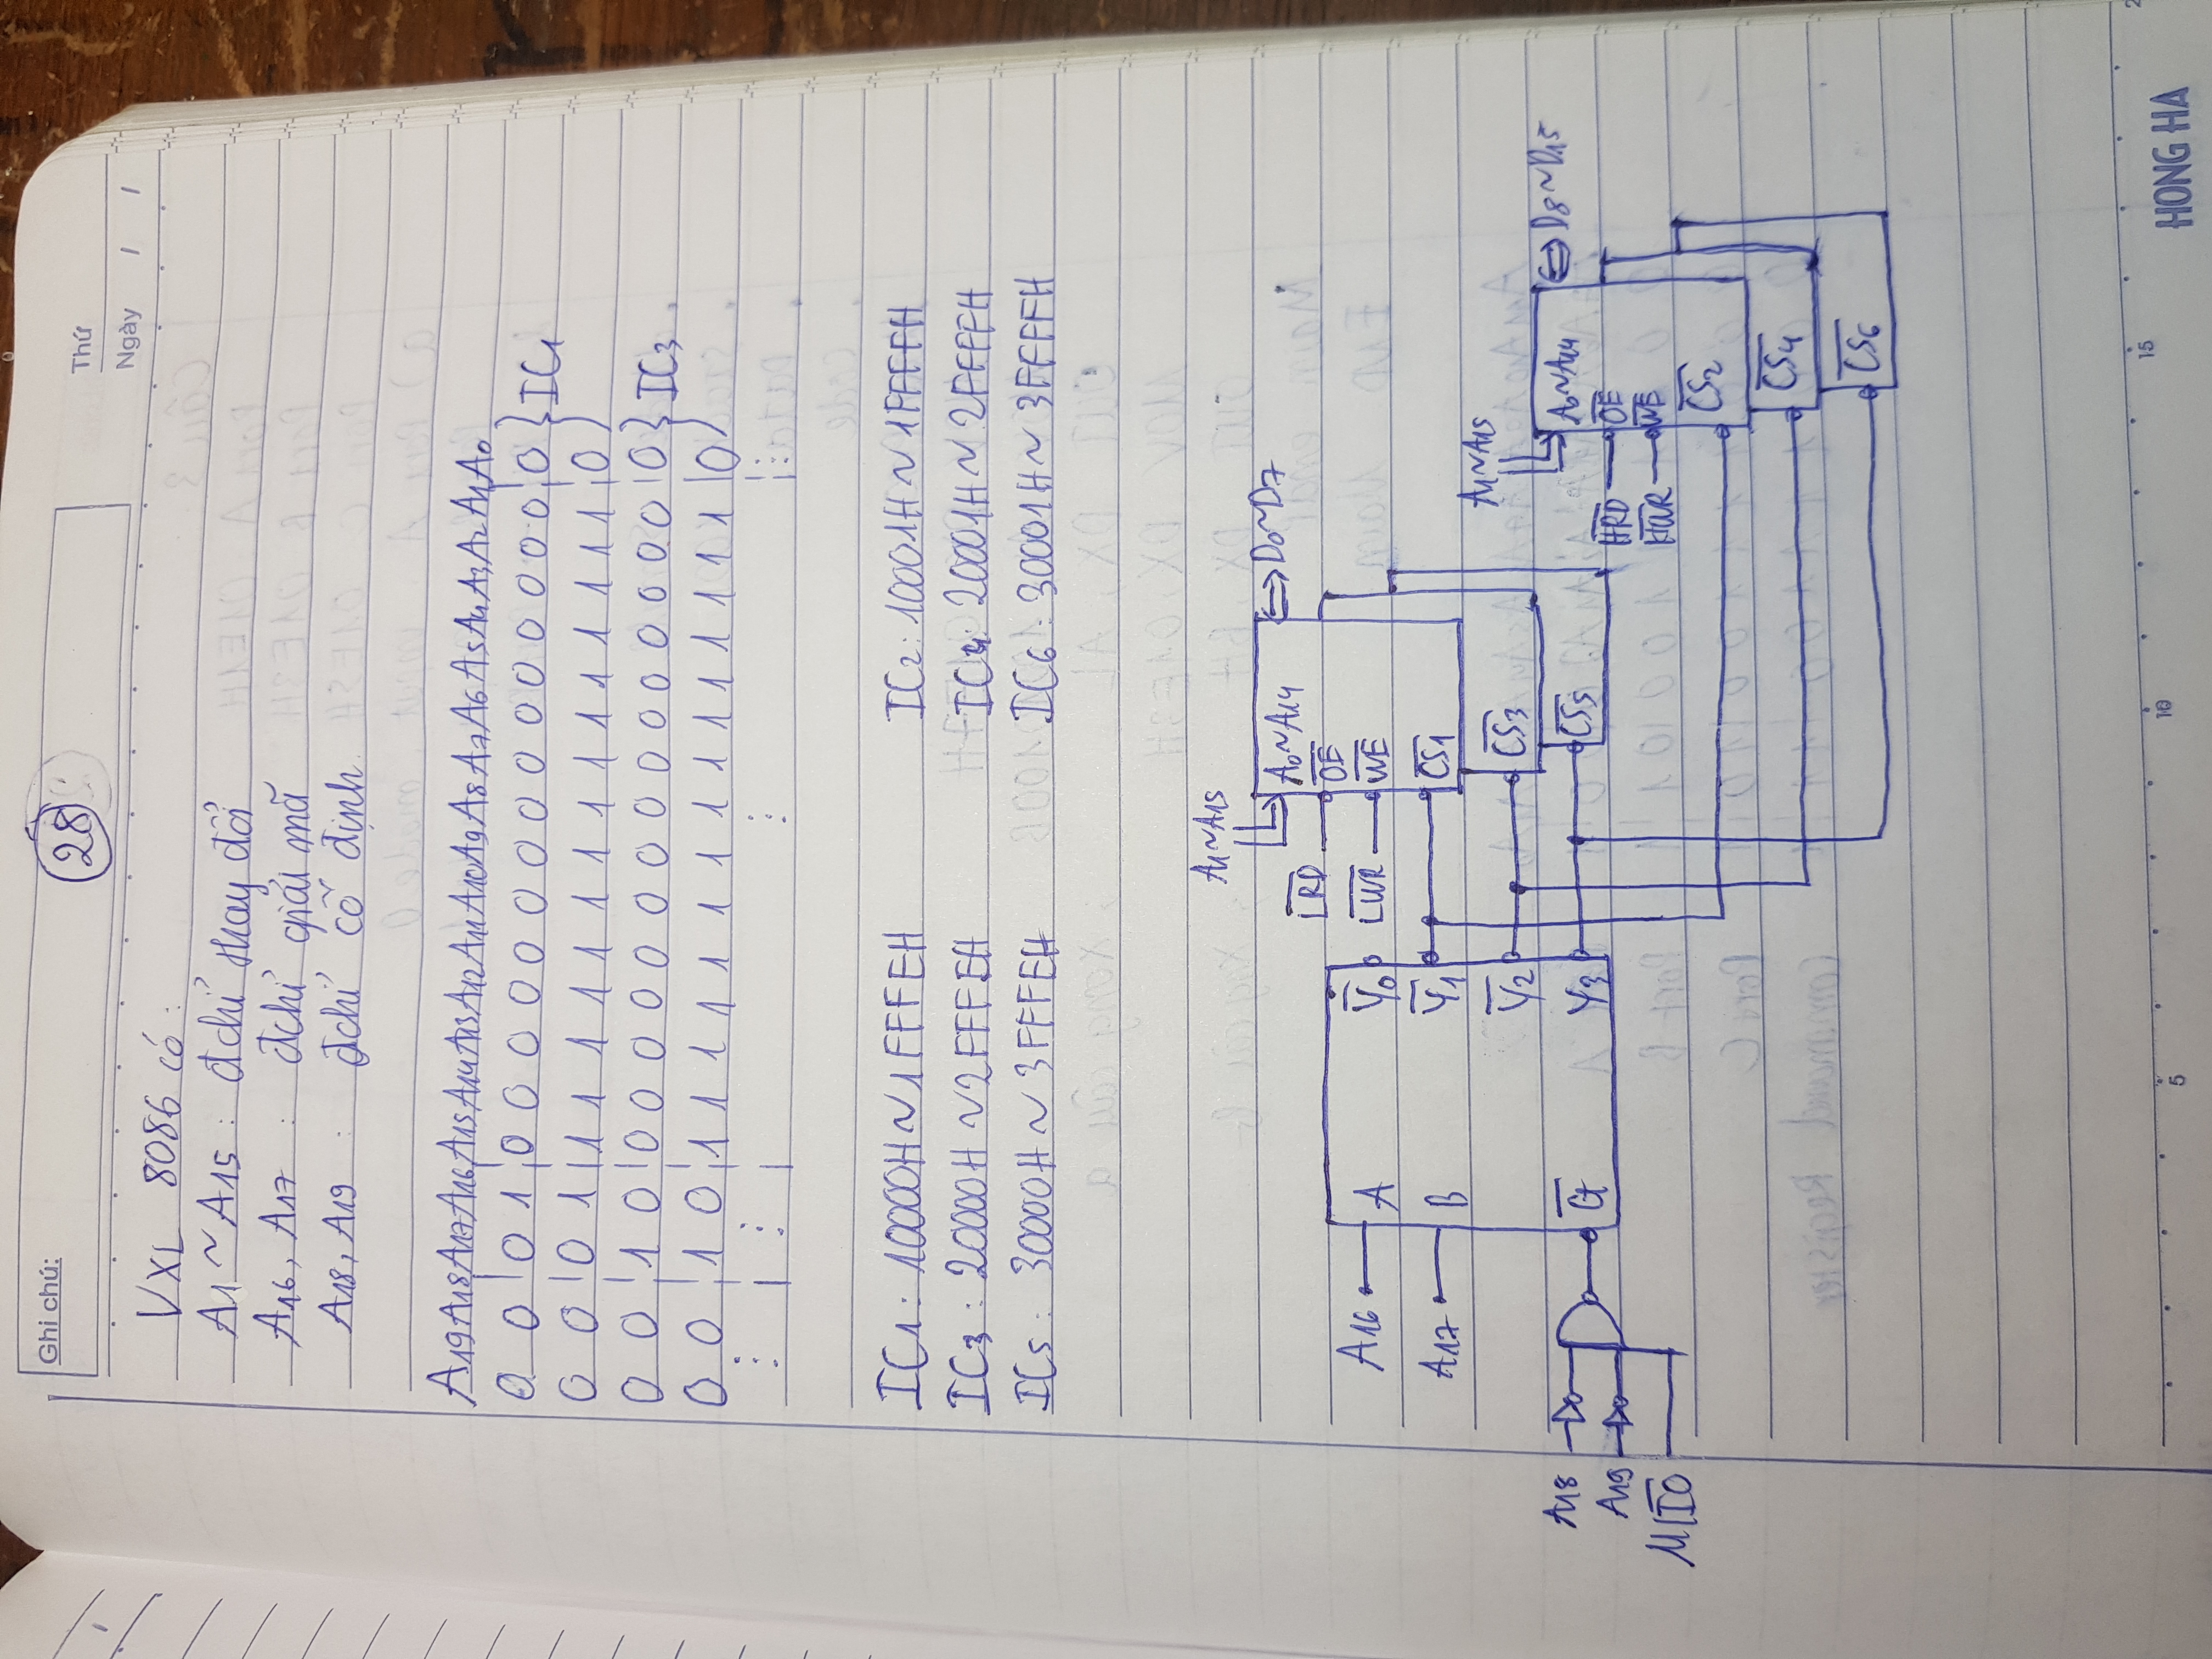 Ghi chú:
28
Thứ
Ngày / /
VXL 8086 có:
A1 ~ A15 : đchỉ thay đổi
A16, A17 : đchỉ giải mã
A18, A19 : đchỉ cố định.
A19 A18 A17 A16 A15 A14 A13 A12 A11 A10 A9 A8 A7 A6 A5 A4 A3 A2 A1 A0
0 0 0 1 0 0 0 0 0 0 0 0 0 0 0 0 0 0 0 0 } IC1
0 0 0 1 1 1 1 1 1 1 1 1 1 1 1 1 1 1 1 0
0 0 1 0 0 0 0 0 0 0 0 0 0 0 0 0 0 0 0 0 } IC3
0 0 1 0 1 1 1 1 1 1 1 1 1 1 1 1 1 1 1 0
IC1 : 10000H ~ 1FFFEH IC2 : 10001H ~ 1FFFFH
IC3 : 20000H ~ 2FFFEH IC4 : 20001H ~ 2FFFFH
IC5 : 30000H ~ 3FFFEH IC6 : 30001H ~ 3FFFFH
A1~A15
A0~A14
D0~D7
L̅R̅D̅
O̅E̅
L̅W̅R̅
W̅E̅
C̅S̅1
C̅S̅3
C̅S̅5
A16
A
Y̅0
A17
B
Y̅1
Y̅2
Y̅3
A18
A19
M/I̅O̅
G̅
A1~A15
A0~A14
D8~D15
H̅R̅D̅
O̅E̅
H̅W̅R̅
W̅E̅
C̅S̅2
C̅S̅4
C̅S̅6
5 10 15
HONG HA